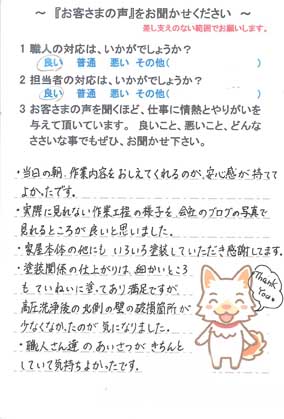 ～ 『お客さまの声』をお聞かせください ～
差し支えのない範囲でお願いします。
1 職人の対応は、いかがでしょうか?
良い 普通 悪い その他( )
2 担当者の対応は、いかがでしょうか?
良い 普通 悪い その他( )
3 お客さまの声を聞くほど、仕事に情熱とやりがいを
与えて頂いています。 良いこと、悪いこと、どんな
ささいな事でもぜひ、お聞かせ下さい。
・当日の朝、作業内容をおしえてくれるのが、安心感が持てて
よかったです。
・実際に見れない作業工程の様子を 会社のブログの写真で
見れるところが良いと思いました。
・家屋本体の他にも いろいろ塗装していただき感謝してます。
・塗装関係の仕上がりは、細かいところ
も ていねいに塗ってあり満足ですが、
高圧洗浄後の北側の壁の破損箇所が
少なくなかったのが 気になりました。
・職人さん達のあいさつが きちんと
していて気持ちよかったです。
Thank You♥